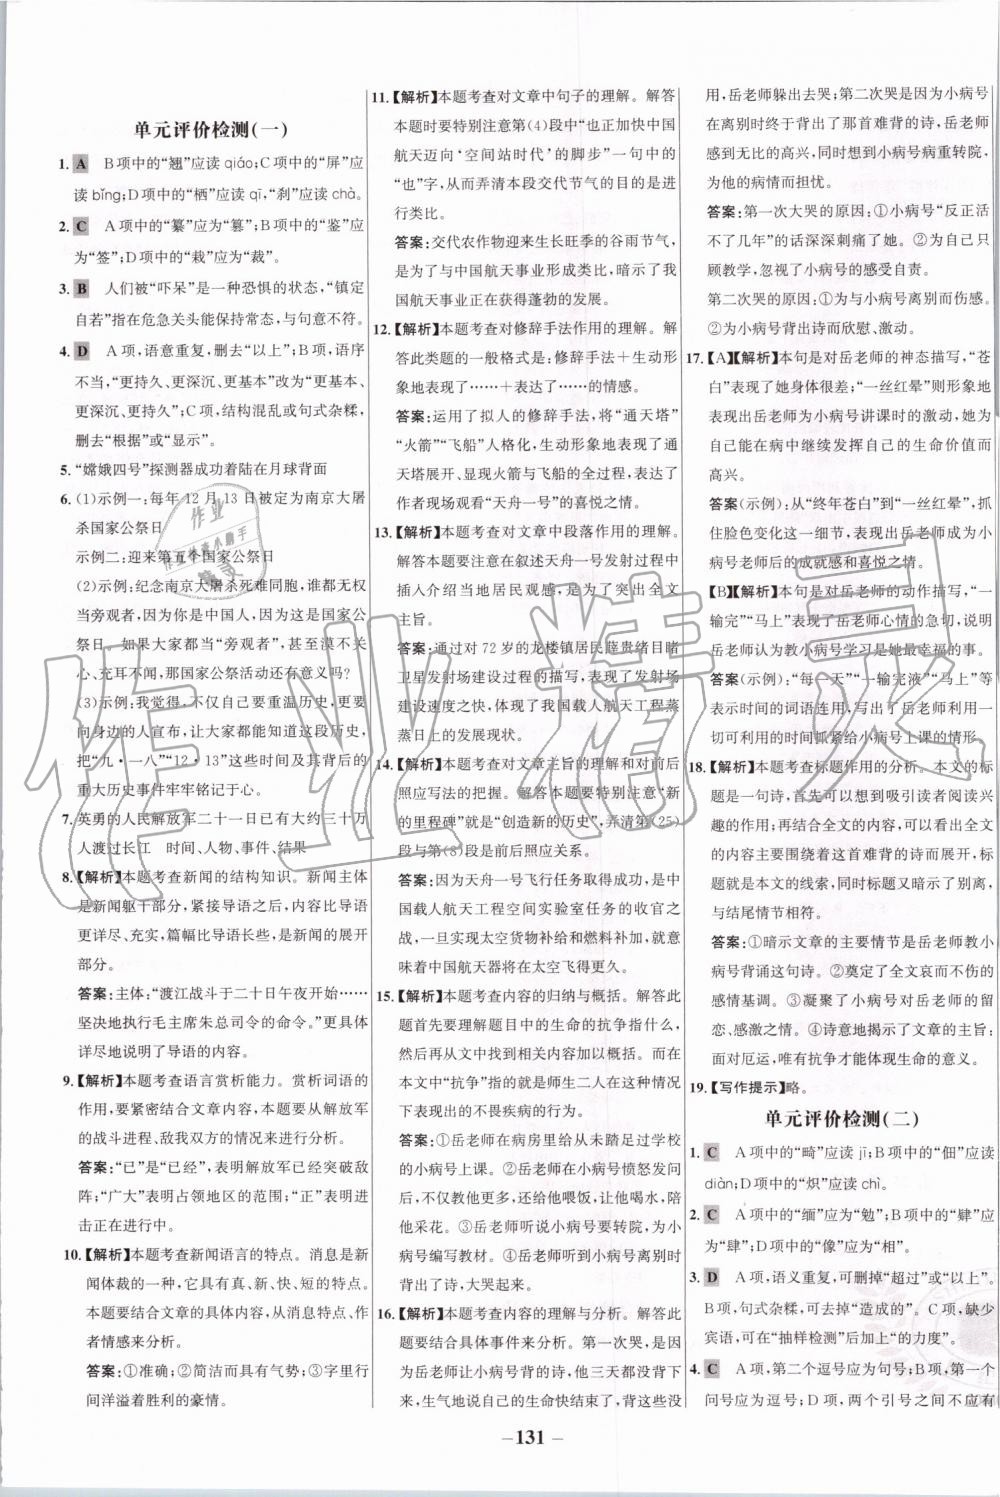 单元评价检测(一)
1. A B项中的“翘”应读 qiáo;C项中的“屏”应
读 bǐng;D项中的“栖”应读 qī,“刹”应读 chà。
2. C A项中的“纂”应为“篡”;B项中的“鉴”应
为“签”;D项中的“栽”应为“裁”。
3. B 人们被“吓呆”是一种恐惧的状态,“镇定
自若”指在危急关头能保持常态,与语意不符。
4. D A项,语意重复,删去“以上”;B项,语序
不当,“更持久、更深沉、更基本”改为“更基本、
更深沉、更持久”;C项,结构混乱或句式杂糅,
删去“根据”或“显示”。
5. “嫦娥四号”探测器成功着陆在月球背面
6. (1)示例一:每年12月13日被定为南京大屠
杀国家公祭日
示例二:迎来第五个国家公祭日
(2)示例:纪念南京大屠杀死难同胞,谁都无权
当旁观者,因为你是中国人,因为这是国家公
祭日。如果大家都当“旁观者”,甚至漠不关
心、充耳不闻,那国家公祭活动还有意义吗?
(3)示例:我觉得,不仅仅国家要重温历史,更
要向世人宣布,让大家都能知道这段历史,
把“九·一八”“12·13”这些时间及其背后的
重大历史事件牢牢铭记于心。
7. 英勇的人民解放军二十一日已有大约三十万
人渡过长江 时间、人物、事件、结果
8. 【解析】本题考查新闻的结构知识。新闻主体
是新闻躯干部分,紧接导语之后,内容较导语
更详尽、充实,篇幅比导语长些,是新闻的展开
部分。
答案:主体:“渡江战斗于二十日午夜开始……
坚决地执行毛主席朱总司令的命令。”更具体
详尽地说明了导语的内容。
9. 【解析】本题考查语言赏析能力。赏析词语的
作用,要紧密结合文章内容,本题要从解放军
的战斗进程、敌我双方的情况来进行分析。
答案:“已”是“已经”,表明解放军已经突破敌
阵;“广大”表明占领地区的范围;“正”表明进
击正在进行中。
10. 【解析】本题考查新闻语言的特点。消息是新
闻体裁的一种,它具有真、新、快、短的特点。
本题要结合文章的具体内容,从消息特点、作
者情感来分析。
答案:①准确;②简洁而具有气势;③字里行
间洋溢着胜利的豪情。
11. 【解析】本题考查对文章中句子的理解。解答
本题时要特别注意第(4)段中“也正加快中国
航天迈向‘空间站时代’的脚步”一句中的
“也”字,从而弄清本段交代节气的目的是进
行类比。
答案:交代农作物迎来生长旺季的谷雨节气,
是为了与中国航天事业形成类比,暗示了我
国航天事业正在获得蓬勃的发展。
12. 【解析】本题考查对修辞手法作用的理解。解
答此类题的一般格式是:修辞手法+生动形
象地表现了……+表达了……的情感。
答案:运用了拟人的修辞手法,将“通天塔”
“火箭”“飞船”人格化,生动形象地表现了通
天塔的高大、呵护火箭与飞船的安全,表达了
作者现场观看“天舟一号”的喜悦之情。
13. 【解析】本题考查对文章中段落作用的理解。
解答本题要注意在叙述天舟一号发射过程中
插入介绍当地居民观感,意在进一步表现文章
主旨。
答案:通过对72岁的龙楼镇居民薛贵绪目睹
卫星发射场建设过程的描写,表现了发射场
建设速度之快,突出了我国载人航天工程蒸
蒸日上的发展现状。
14. 【解析】本题考查对文章主旨的理解和对前后
照应写法的把握。解答本题要特别注意“新
的里程碑”就是“创造新的历史”,弄清第(25)
段与第(3)段是前后照应关系。
答案:因为天舟一号飞行任务取得成功,是中
国载人航天工程空间实验室任务的收官之
战,一旦实现太空货物补给和燃料补加,就意
味着中国航天器将在太空飞得更久。
15. 【解析】本题考查内容的归纳与概括。解答此
题首先要理解题目中的生命的抗争指什么,
然后从文本中找出相关的事例进行概括。在
本文中“抗争”指的是师生二人在这种情况下
表现出的不畏疾病的行为。
答案:①岳老师在病房里给从未踏足过学校
的小病号上课。②岳老师听到小病号愤怒发
脾气教她更投入,还给他喂饭,让他喝水,陪
他采花。③岳老师听说小病号要转院,为小
病号编写教材。④岳老师听到小病号在离别时
背出了诗,大哭起来。
16. 【解析】本题考查内容的理解与分析。解答此
题要结合具体事件来分析。第一次哭,是因
为岳老师让小病号背的诗,他三天都没背下
来,生气说自己的生命快结束了,背这些没
用,岳老师躲出去哭;第二次哭是因为小病号
在离别时终于背出了那首难背的诗,岳老师
是感动的高兴,加之听到小病号病重转院,
为他的病情而担忧。
答案:第一次大哭的原因:①小病号“反正活
不了几年”的话深深刺痛了她。②为自己只
顾教学,忽视了小病号的感受自责。
第二次哭的原因:①为与小病号离别而伤感。
②为小病号背出诗而欣慰、激动。
17. 【A】【解析】本句是对岳老师的神态描写,“苍
白”表现了她身体很差,“一丝红晕”则形象地
表现出岳老师为小病号讲课时的激动,她为
自己能在病中继续发挥自己的生命价值而
高兴。
答案(示例):从“终年苍白”到“一丝红晕”,抓
住脸色变化这一细节,表现出岳老师在小病
号记得课后的成就感和喜悦之情。
【B】【解析】本句是对岳老师的动作描写,“一
输完”“马上”表现了岳老师心情的急切,说明
岳老师认为教小病号学习是她最幸福的事。
答案(示例):“每一天”“一输完液”“马上”等
表示时间的词语连用,写出了岳老师利用一
切可利用的时间抓紧给小病号上课的情形。
18. 【解析】本题考查标题作用的分析。本文的标
题是一句诗,首先可以吸引读者阅读兴
趣的作用;再结合全文的内容,可以看出全文
的内容主要围绕着这首难背的诗而展开,标
题就是本文的线索,同时标题又暗示了别离,
与结尾情节相符。
答案:①暗示文章的主要情节是岳老师教小
病号背诵这句诗。②奠定了全文哀而不伤的
感情基调。③凝聚了小病号对岳老师的留
恋、感激之情。④诗意地揭示了文章的主旨:
面对厄运,唯有抗争才能体现生命的意义。
19. 【写作提示】略。
单元评价检测(二)
1. C A项中的“畸”应读 jī;B项中的“佃”应读
diàn;D项中的“炽”应读 chì。
2. C A项中的“缅”应为“勉”;B项中的“肄”应
为“肆”;D项中的“像”应为“相”。
3. D A项,语义重复,可删掉“超过”或“以上”。
B项,句式杂糅,可去掉“造成的”。C项,缺少
宾语,可在“抽样检测”后加上“的力度”。
4. C A项,第二个逗号应为句号;B项,第一个
问号应为逗号;D项,两个引号之间不应有
— 131 —
作业精灵